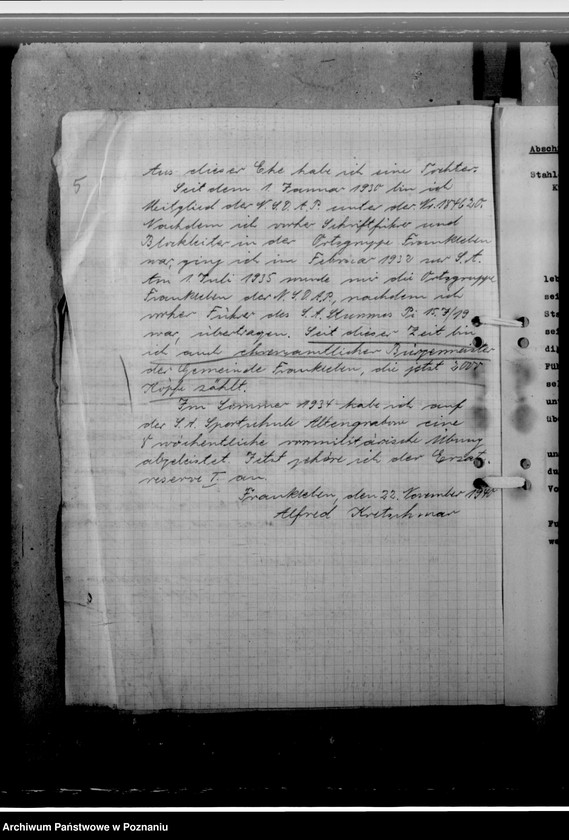 5
Aus dieser Ehe habe ich eine Tochter.
Seit dem 1. Januar 1930 bin ich
Mitglied der N.S.D.A.P. unter der No. 184620.
Nachdem ich vorher Schriftführer und
Blockleiter in der Ortsgruppe Frankleben
war, ging ich im Februar 1932 zur S.A.
Am 1. Juli 1935 wurde mir die Ortsgruppe
Frankleben der N.S.D.A.P., nachdem ich
vorher Führer des S.A. Sturmes
war, übertragen. Seit dieser Zeit bin
ich auch ehrenamtlicher Bürgermeister
der Gemeinde Frankleben, die jetzt 2000
Köpfe zählt.
Im Sommer 1934 habe ich auf
der S.A. Sportschule Altengrabow eine
8 wöchentliche vormilitärische Übung
abgeleistet. Jetzt gehöre ich der Ersatz-
reserve I an.
Frankleben, den 22. November 1940
Alfred Kretschmar
Absch
Stahl
K
leb
sei
Sta
sei
di
Fü
sel
un
üb
un
du
Vo
Fu
we
Archiwum Państwowe w Poznaniu